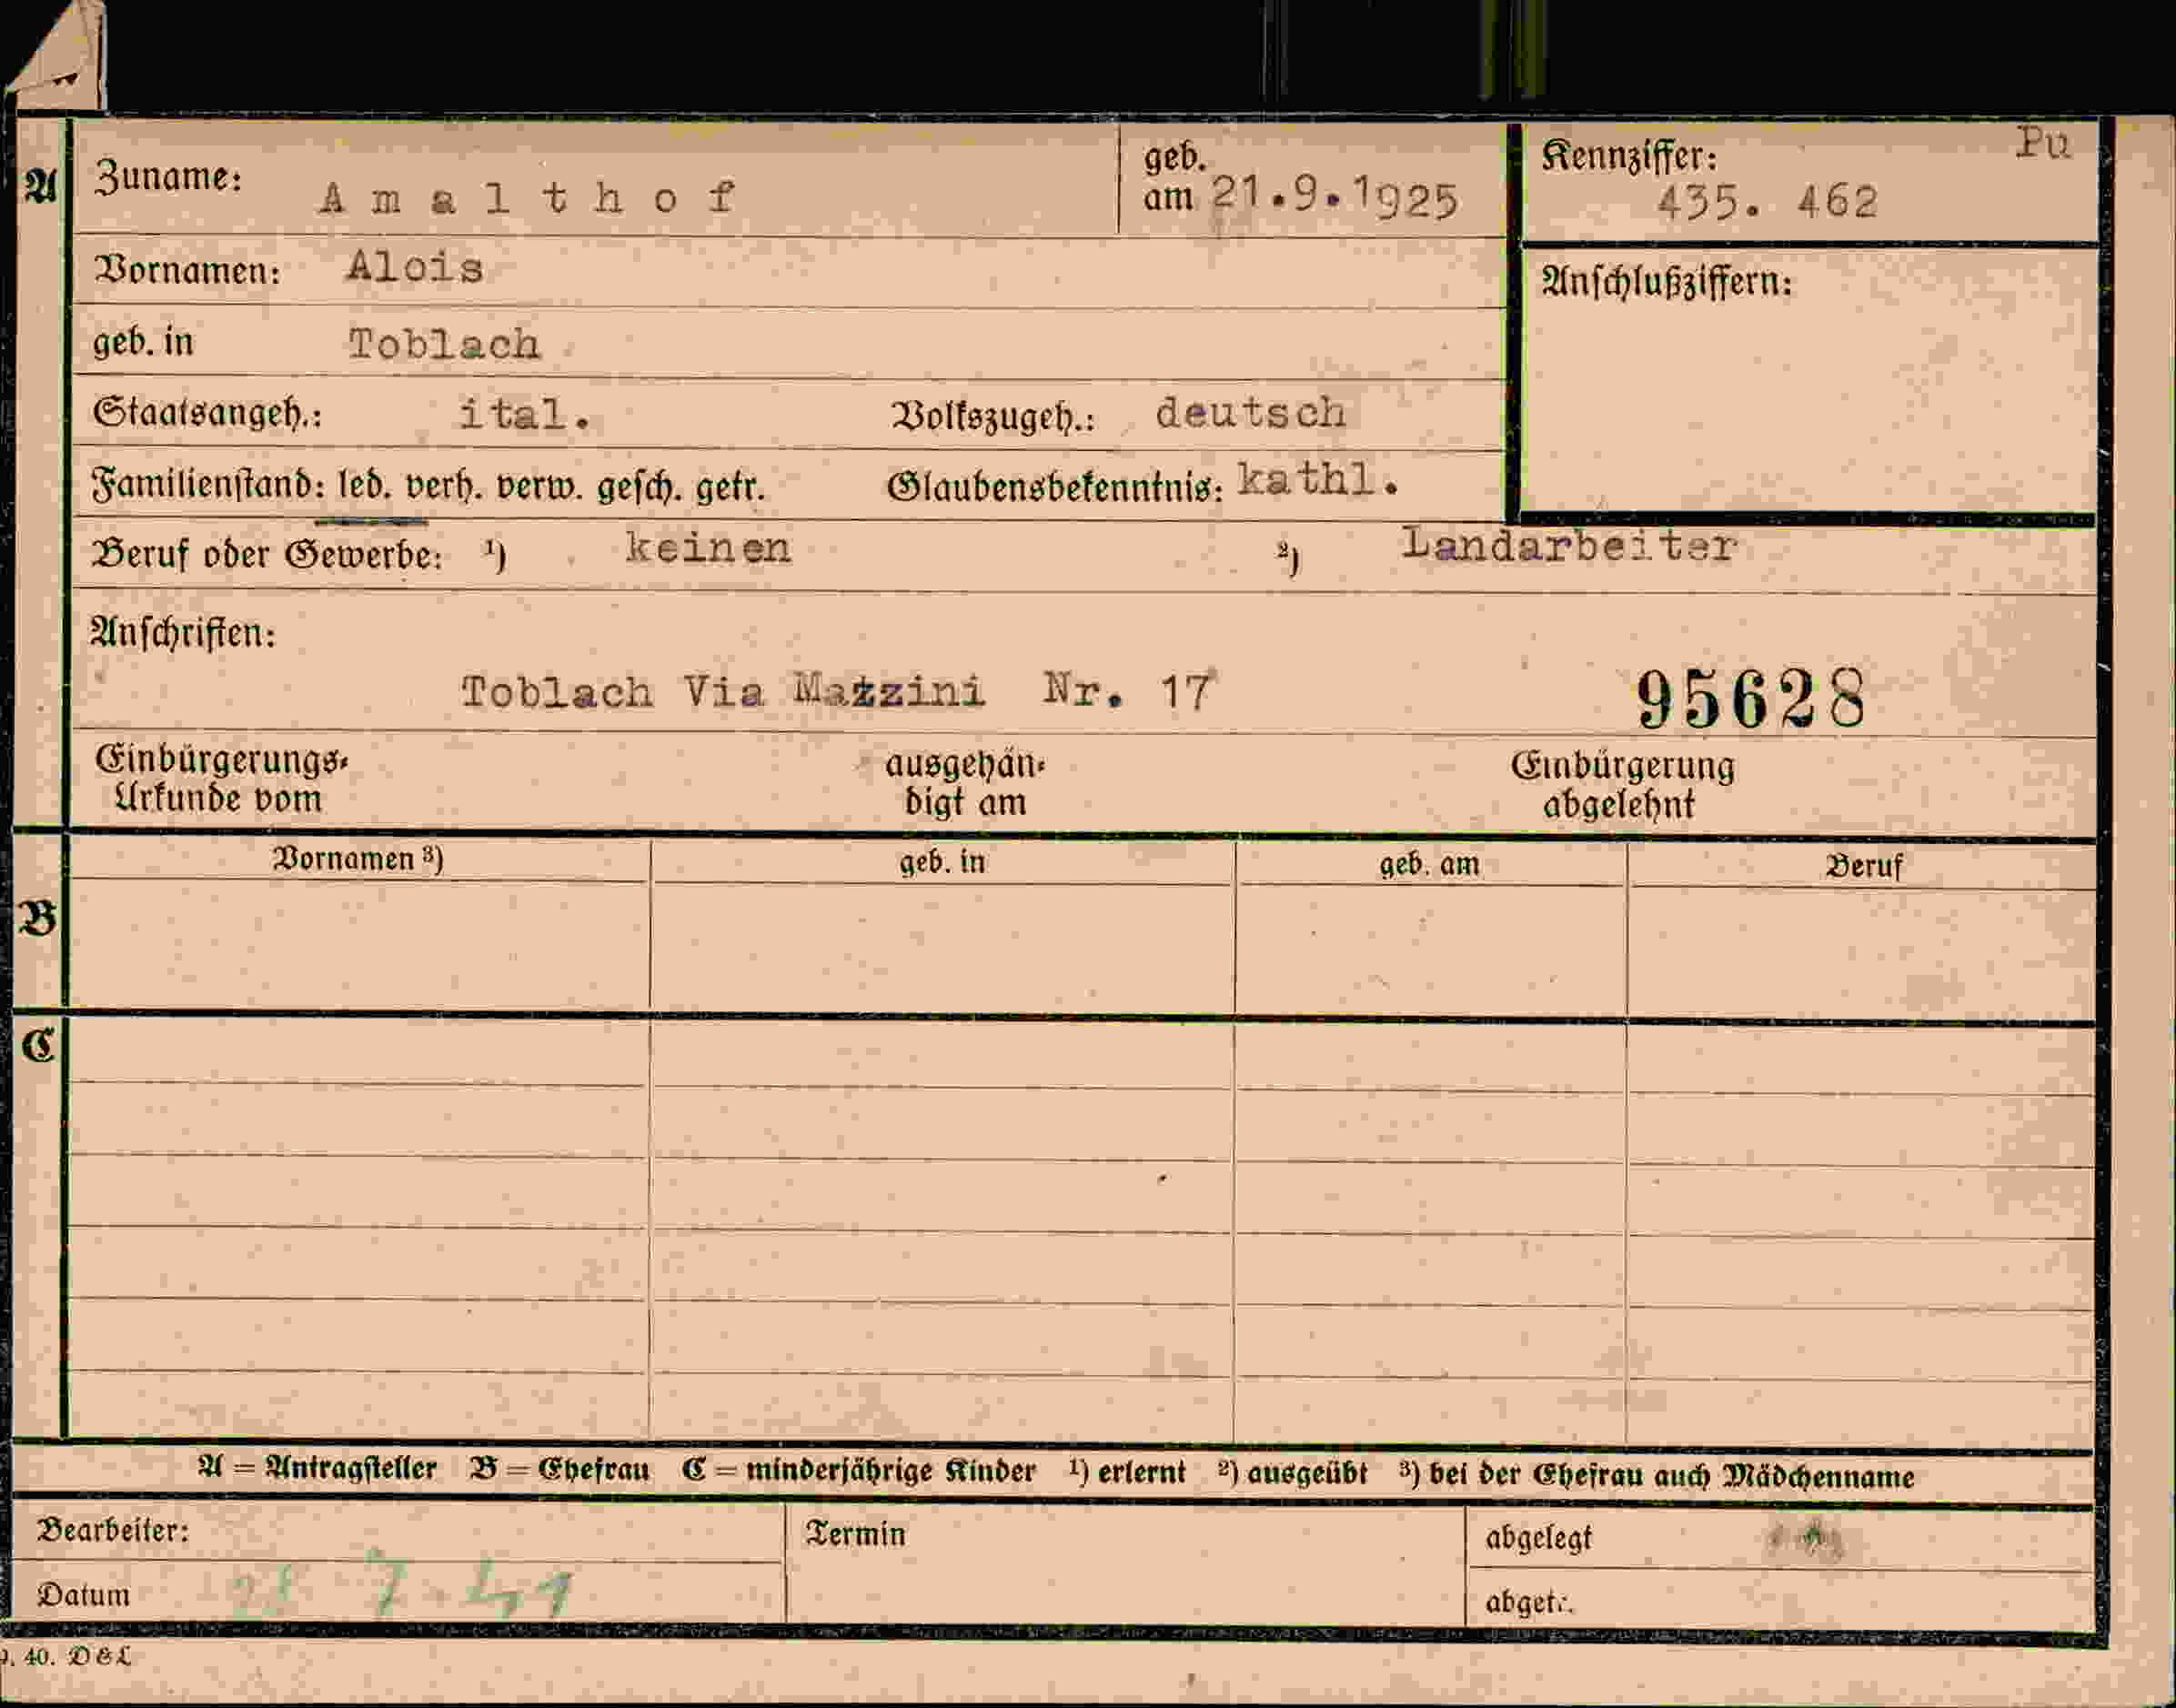 A Zuname: Amalthof geb. am 21.9.1925 Kennziffer: 435. 462 Pu
Vornamen: Alois
Anschlußziffern:
geb. in Toblach
Staatsangeh.: ital. Volkszugeh.: deutsch
Familienstand: led. verh. verw. gesch. getr. Glaubensbekenntnis: kathl.
Beruf oder Gewerbe: ¹) keinen ²) Landarbeiter
Anschriften:
Toblach Via Mazzini Nr. 17 95628
Einbürgerungs- ausgehän- Einbürgerung
Urkunde vom digt am abgelehnt
Vornamen ³) geb. in geb. am Beruf
B
C
A = Antragsteller B = Ehefrau C = minderjährige Kinder ¹) erlernt ²) ausgeübt ³) bei der Ehefrau auch Mädchenname
Bearbeiter: Termin abgelegt
Datum 7.41
40. D&L